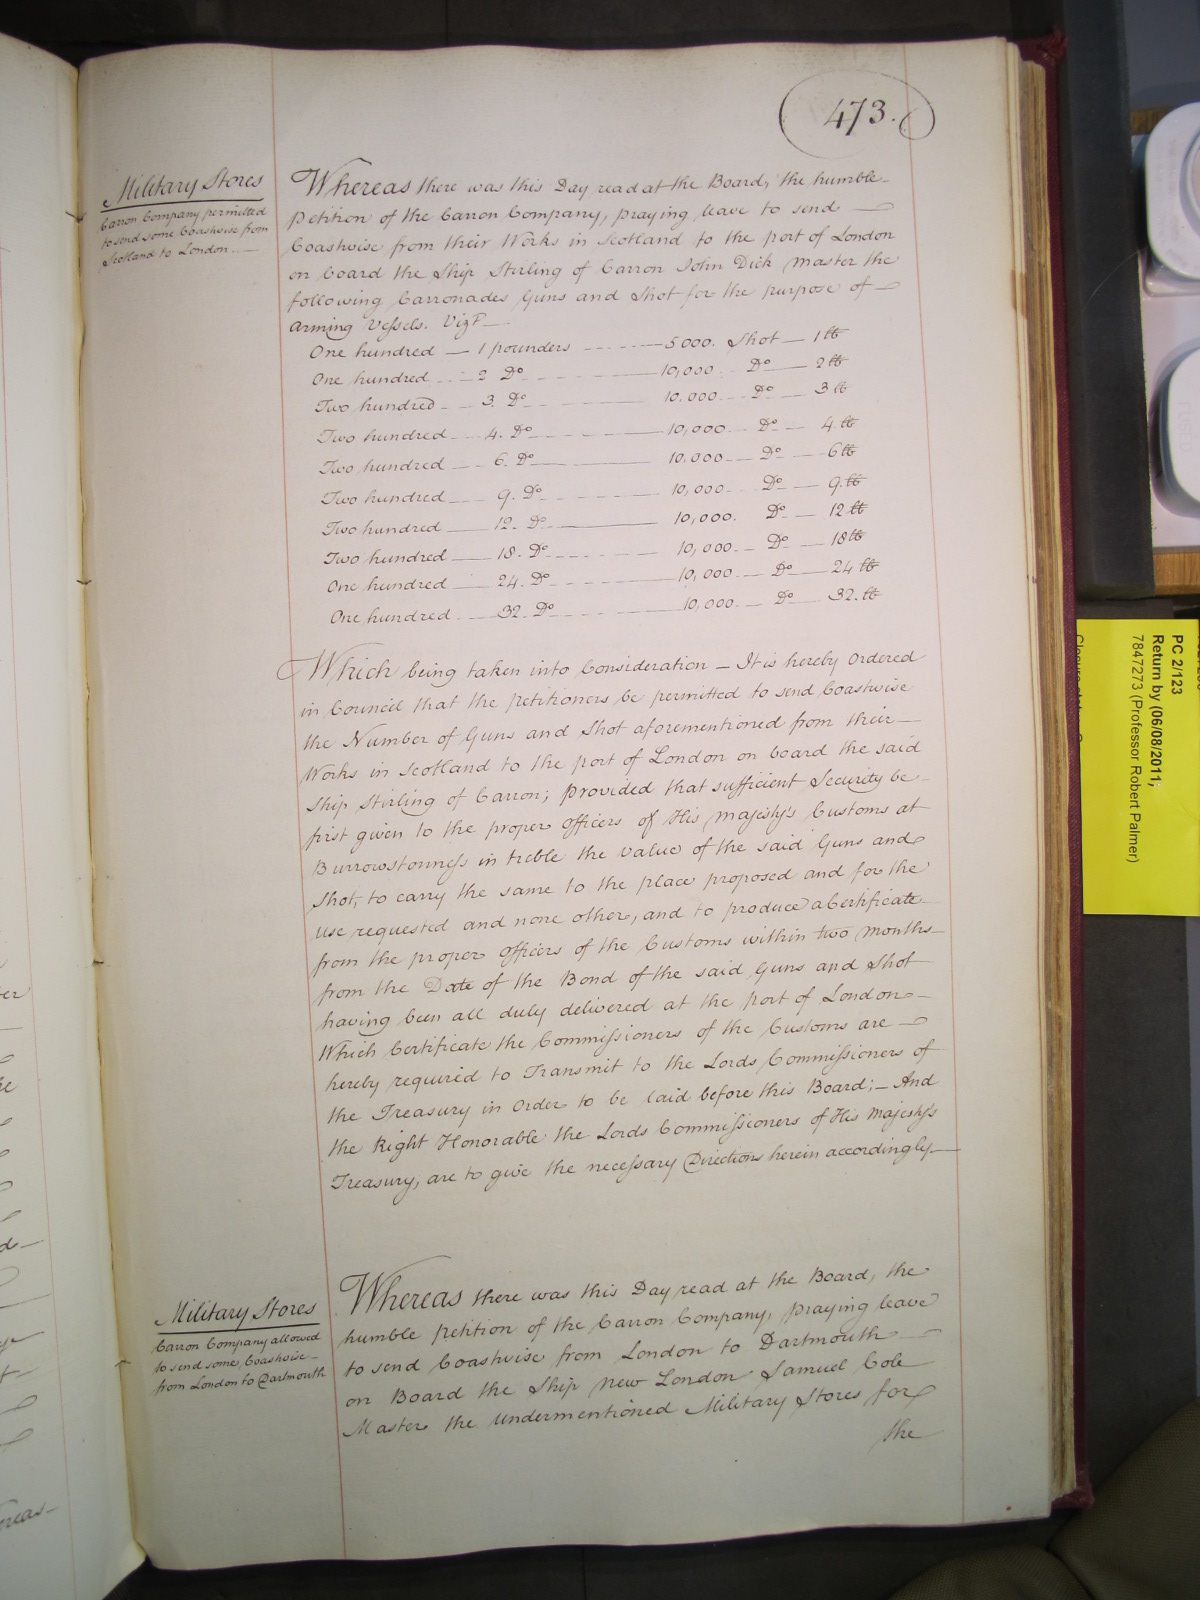 473.
Military Stores
Carron Company permitted
to send some Coastwise from
Scotland to London
Whereas there was this Day read at the Board, the humble
Petition of the Carron Company, praying leave to send
Coastwise from their Works in Scotland to the port of London
on board the Ship Stirling of Carron John Dick Master the
following Carronades Guns and Shot for the purpose of
Arming Vessels. Vizt
One hundred — 1 pounders ---- 5000. Shot — 1 lb
One hundred ... 2 Do ---- 10,000 Do — 2 lb
Two hundred - 3. Do ---- 10.000 Do — 3 lb
Two hundred - 4. Do ---- 10,000 Do — 4 lb
Two hundred - 6. Do ---- 10.000 Do — 6 lb
Two hundred - 9. Do ---- 10,000 Do — 9. lb
Two hundred — 12. Do ---- 10,000. Do — 12 lb
Two hundred — 18. Do ---- 10,000 Do — 18 lb
One hundred — 24. Do ---- 10,000 Do — 24 lb
One hundred — 32. Do ---- 10,000 Do — 32. lb
Which being taken into Consideration — It is hereby Ordered
in Council that the petitioners be permitted to send Coastwise
the Number of Guns and Shot aforementioned from their
Works in Scotland to the port of London on board the said
Ship Stirling of Carron; provided that sufficient Security be
first given to the proper Officers of His Majesty's Customs at
Burrowstonness in treble the value of the said Guns and
Shot, to carry the same to the place proposed and for the
use requested and none other, and to produce a Certificate
from the proper Officers of the Customs within two Months
from the Date of the Bond of the said Guns and Shot
having been all duly delivered at the port of London
Which Certificate the Commissioners of the Customs are
hereby required to Transmit to the Lords Commissioners of
the Treasury in Order to be laid before this Board; — And
the Right Honorable the Lords Commissioners of His Majesty's
Treasury, are to give the necessary Directions herein accordingly —
Military Stores
Carron Company allowed
to send some, Coastwise
from London to Dartmouth
Whereas there was this Day read at the Board, the
humble petition of the Carron Company, praying leave
to send Coastwise from London to Dartmouth
on Board the Ship New London Samuel Cole
Master the undermentioned Military Stores for
the
PC 2/123
Return by (06/08/2011;
7847273 (Professor Robert Palmer)